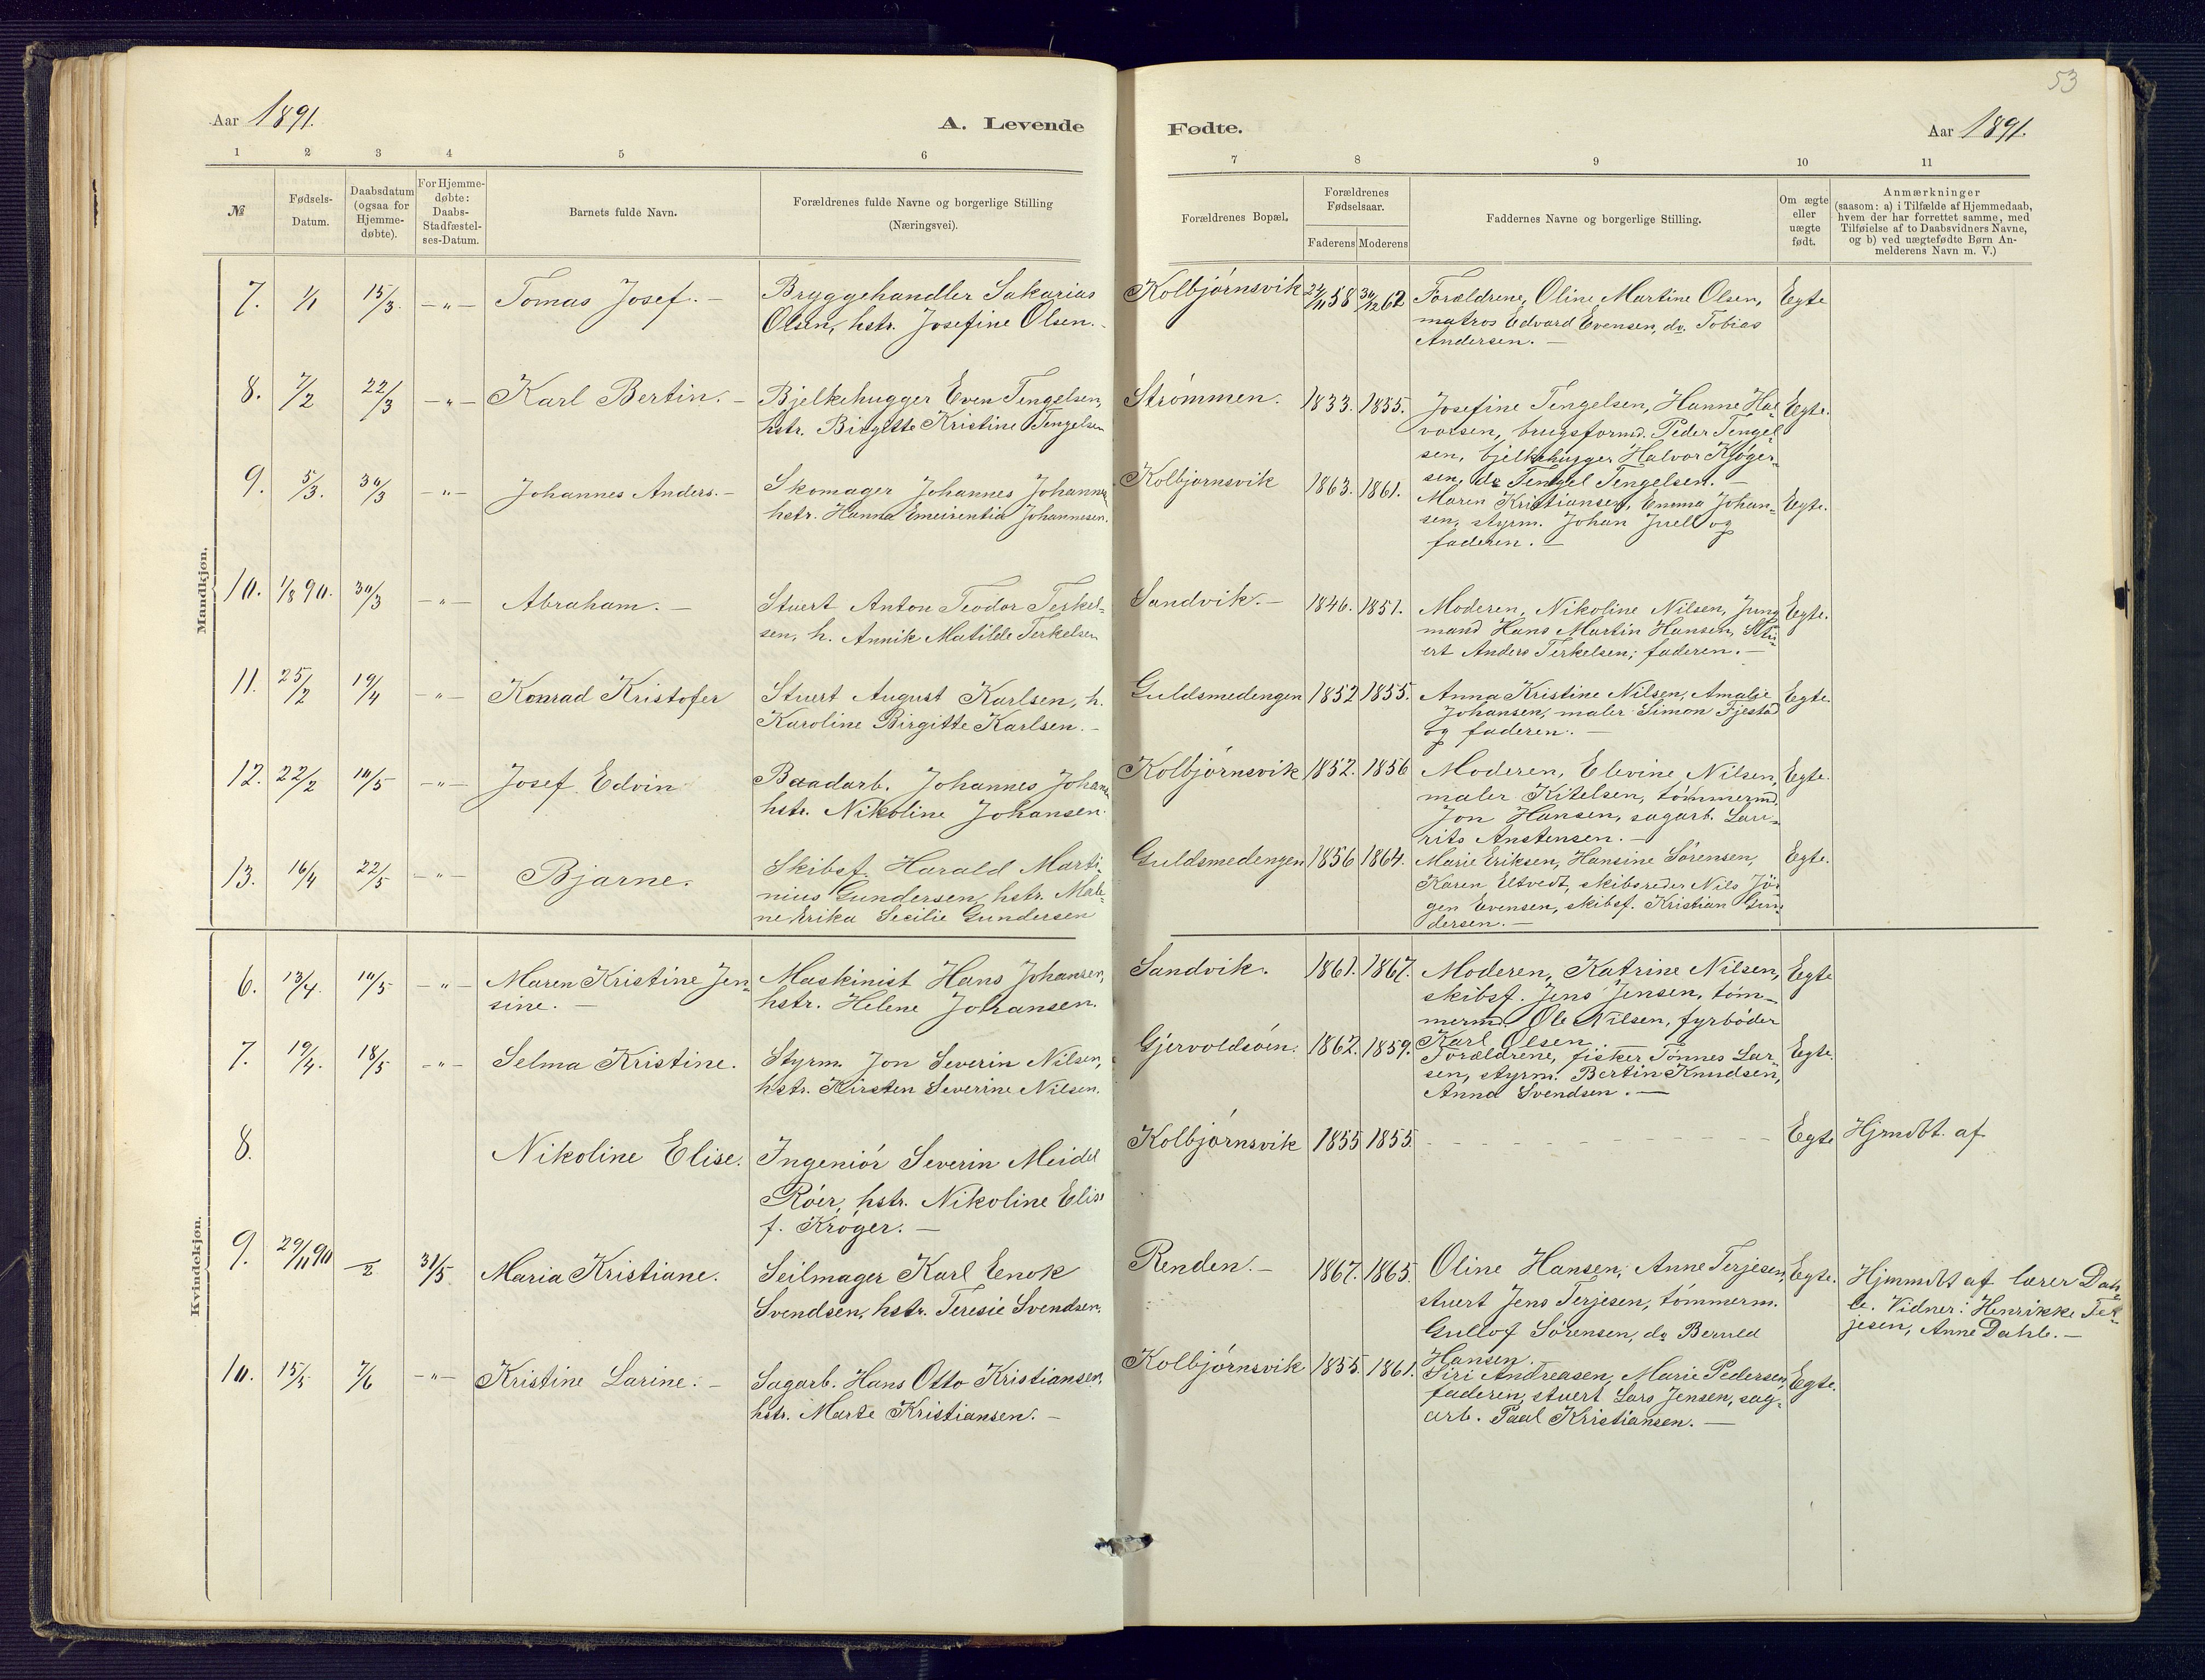 53
Aar 1891.
A. Levende
Fødte.
Aar 1891.
1 2 3 4 5 6 7 8 9 10 11
№
Fødsels-
Datum.
Daabsdatum
(ogsaa for
Hjemme-
døbte).
For Hjemme-
døbte:
Daabs-
Stadfæstel-
ses-Datum.
Barnets fulde Navn.
Forældrenes fulde Navne og borgerlige Stilling
(Næringsvei).
Forældrenes Bopæl.
Forældrenes
Fødselsaar.
Faderens Moderens
Faddernes Navne og borgerlige Stilling.
Om ægte
eller
uægte
født.
Anmærkninger
(saasom: a) i Tilfælde af Hjemmedaab,
hvem der har forrettet samme, med
Tilføielse af to Daabsvidners Navne,
og b) ved uægtefødte Børn An-
melderens Navn m. V.)
Mandkjøn.
7. 1/1 15/3. —"— Tomas Josef. —
Bryggehandler Sakarias
Olsen, hstr. Josefine Olsen. -
Kolbjørnsvik 24/11 58 30/12 62
Forældrene, Oline Martine Olsen,
matros Edvard Evensen, do. Tobias
Andersen. —
Egte
8. 7/2 22/3 —"— Karl Bertin. —
Bjelkehugger Even Tengelsen,
hstr. Birgitte Kristine Tengelsen
Strømmen. 1833. 1855.
Josefine Tengelsen, Hanne Hal-
vorsen, brugsformd. Peder Tengel-
sen, bjelkehugger Halvor Kjøger-
sen, do Tengel Tengelsen. —
Egte.
9. 5/3. 30/3 —"— Johannes Anders. —
Skomager Johannes Johannes
hstr. Hanna Emeirentia Johannesen.
Kolbjørnsvik 1863. 1861.
Maren Kristiansen, Emma Johan-
sen, styrm. Johan Juell og
faderen. —
Egte.
10. 1/8 90. 30/3 —"— Abraham. —
Stuert Anton Teodor Terkel-
sen, h. Annik Matilde Terkelsen
Sandvik. — 1846. 1851.
Moderen, Nikoline Nilsen, Jung
mand Hans Martin Hansen, Stu-
ert Anders Terkelsen; faderen. —
Egte.
11. 25/2 19/4 —"— Konrad Kristofer
Stuert August Karlsen, h.
Karoline Birgitte Karlsen. -
Guldsmedengen 1852 1855.
Anna Kristine Nilsen, Amalie
Johansen, maler Simon Fjestad
og faderen. —
Egte.
12. 22/2 10/5 —"— Josef Edvin
Baadarb. Johannes Johansen
hstr. Nikoline Johansen.
Kolbjørnsvik 1852. 1856
Moderen, Elevine Nilsen,
maler Kitelsen, tømmermd.
Jon Hansen, sagarb. Lau-
rits Anstensen. —
Egte.
13. 16/4 22/5 —"— Bjarne.
Skibsf. Harald Marti-
nius Gundersen, hstr. Mali-
ne Erika Secilie Gundersen
Guldsmedengen 1856 1864.
Marie Eriksen, Hansine Sørensen,
Karen Eltvedt, skibsreder Nils Jör
gen Evensen, skibsf. Kristian Gun
dersen. —
Egte.
Kvindekjøn.
6. 13/4. 10/5 —"— Maren Kristine Jen-
sine. —
Maskinist Hans Johansen,
hstr. Helene Johansen.
Sandvik. 1861. 1867.
Moderen, Katrine Nilsen,
skibsf. Jens Jensen, tøm-
mermd. Ole Nilsen, fyrbøder
Karl Olsen
Egte
7. 19/4. 18/5 —"— Selma Kristine.
Styrm. Jon Severin Nilsen,
hstr. Kirsten Severine Nilsen.
Gjervoldsøen. 1862. 1859.
Forældrene, fisker Tønnes Lar
sen, styrm. Bertin Knudsen,
Anna Svendsen. —
Egte.
8. Nikoline Elise.
Ingeniør Severin Meidel
Røer, hstr. Nikoline Elise
f. Krøger. —
Kolbjørnsvik 1855 1855.
Egte
Hjmdbt. af
9. 29/11 90 -/2 31/5. Maria Kristiane.
Seilmager Karl Enok
Svendsen, hstr. Teresie Svendsen.
Renden. — 1867. 1865.
Oline Hansen, Anne Terjesen,
stuert Jens Terjesen, tømmerm.
Gullof Sørensen, do Beruld
Hansen.
Egte.
Hjmmdbt af lærer Dah-
le. Vidner: Henrikke Ter-
jesen, Anne Dahle. —
10. 15/5 7/6 —"— Kristine Larine. —
Sagarb. Hans Otto Kristiansen,
hstr. Marte Kristiansen. —
Kolbjørnsvik 1855. 1861.
Siri Andreasen, Marie Pedersen,
faderen, stuert Lars Jensen, sag-
arb. Paal Kristiansen. —
Egte.